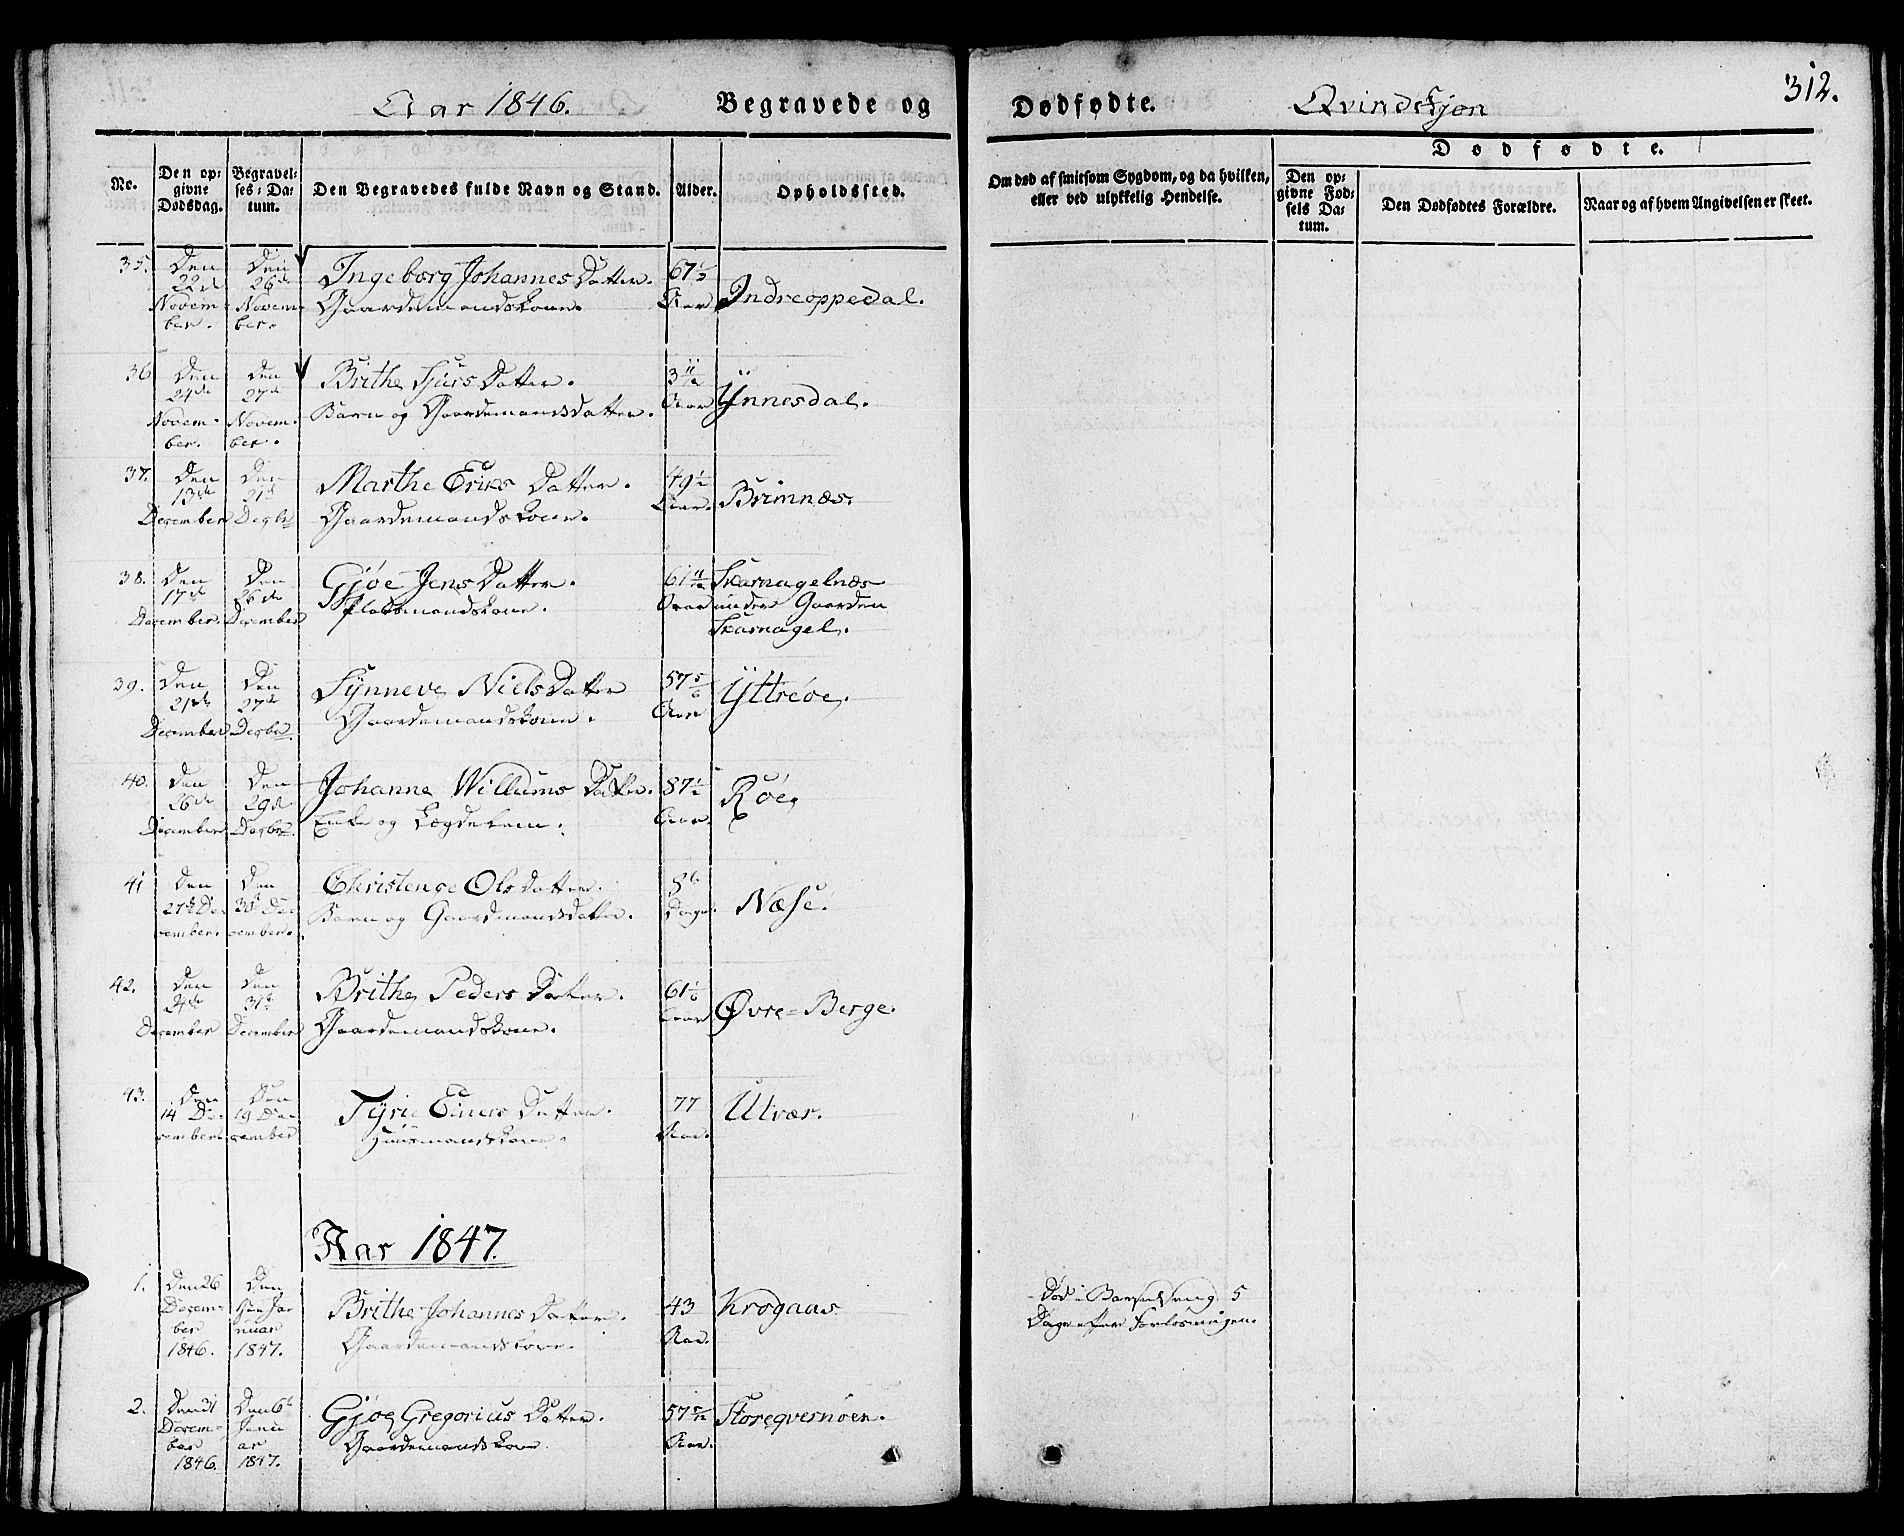 312.
Aar 1846. Begravede og Dødfødte. Qvindekjøn
No.
Den opgivne Dødsdag.
Begravelses-Datum.
Den Begravedes fulde Navn og Stand.
Alder.
Opholdssted.
Om død af smitsom Sygdom, og da hvilken, eller ved ulykkelig Hendelse.
Dødfødte.
Den opgivne Fødsels Datum.
Den Dødfødtes Forældre.
Naar og af hvem Angivelsen er skeet.
35. Den 22de November. Den 26de November. Ingeborg Johannes Datter. 67 1/2 Aar Indreoppedal.
Gaardemandskone.
36 Den 24de November. Den 27de November. Brithe Sjurs Datter. 3 11/12 Aar Ynnesdal.
Barn og Gaardemandsdatter.
37. Den 13de December Den 21de Decbr Marthe Eriks Datter. 49 1/2 Aar. Brimnæs.
Gaardemandskone.
38. Den 17de December. Den 26de December Gjøe Jens Datter. 61 11/12 Aar Skarnagelnæs
Pladsmandskone. under Gaarden
Skarnagel.
39. Den 21de December Den 27de Decbr. Synneve Niels Datter 57 5/6 Aar Yttreøe.
Gaardemandskone.
40. Den 26de December Den 29de Decbr. Johanne Willums Datter. 87 1/2 Aar. Røe
Enke og Lægdelem.
41 Den 27de December. Den 30te December. Christense Ols Datter. 8 Dage. Næse.
Barn og Gaardmandsdatter.
42. Den 24de December Den 31te December Brithe Peders Datter. 61 1/6 Aar Øvre=Berge.
Gaardemandskone.
43. Den 14 December Den 19 December Tyrie Einers Datter. 77 Aar. Utvær.
Huusmandskone.
Aar 1847.
1. Den 26 December 1846. Den Januar 1847. Brithe Johannes Datter. 43 Aar. Krogaas. Død i Barselseng 5
Gaardemandskone. Dage efter Forløsningen.
2. Den 21 December 1846. Den 6te Januar 1847. Gjøe Gregorius Datter. 57 5/12 Aar. Storeqvernøen.
Gaardemandskone.